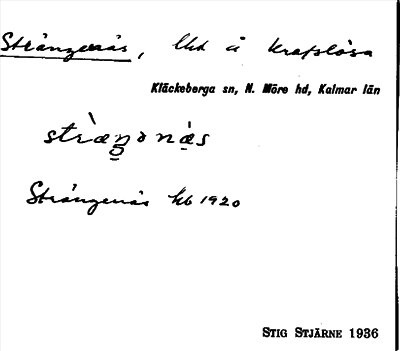 Strångenäs, lht å Krafslösa
Kläckeberga sn, N. Möre hd, Kalmar län
Strångenäs kb 1920
STIG STJÄRNE 1936